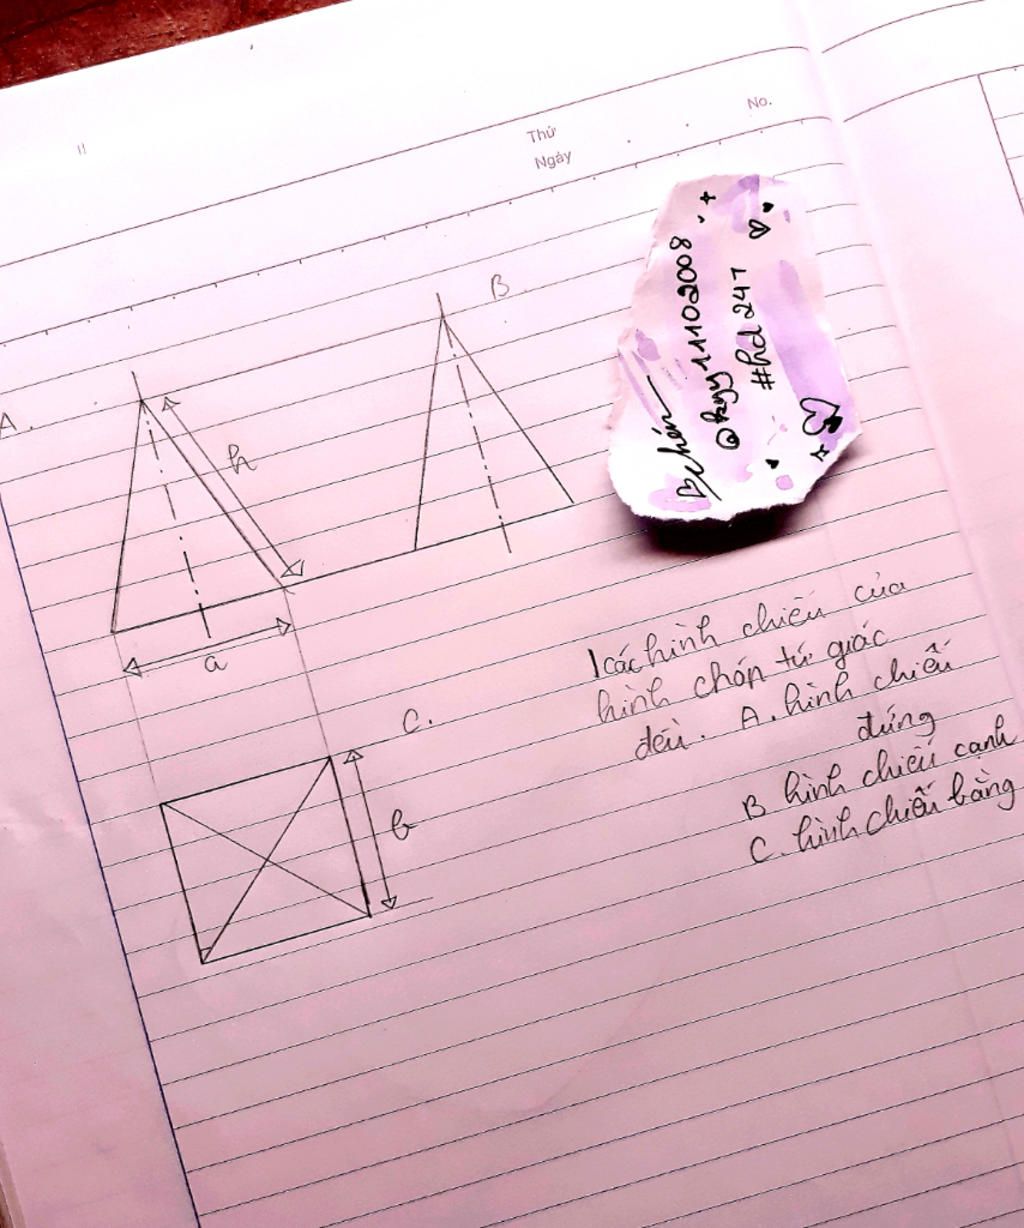 Thứ
Ngày
No.
A.
B
h
a
C.
b
chán
@kyy11102008
#hd 247
1 các hình chiếu của
hình chóp tứ giác
đều. A. hình chiếu
đứng
B hình chiếu cạnh
C. hình chiếu bằng